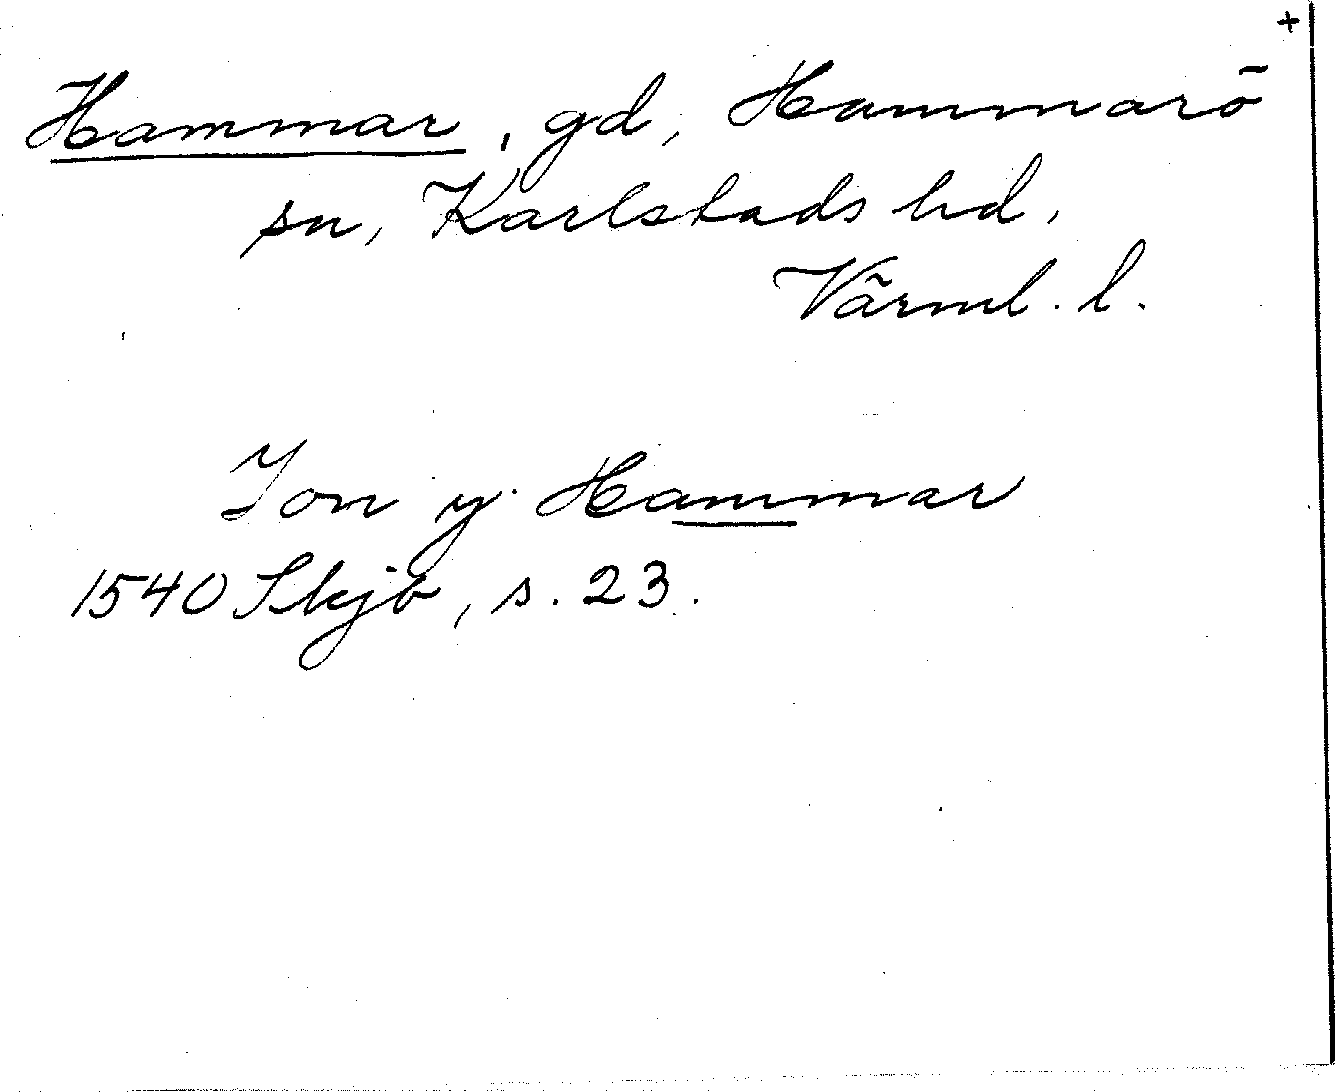 +
Hammar, gd, Hammarö
sn, Karlstads hd,
Värml. l.
Jon y Hammar
1540 Skjb, s. 23.